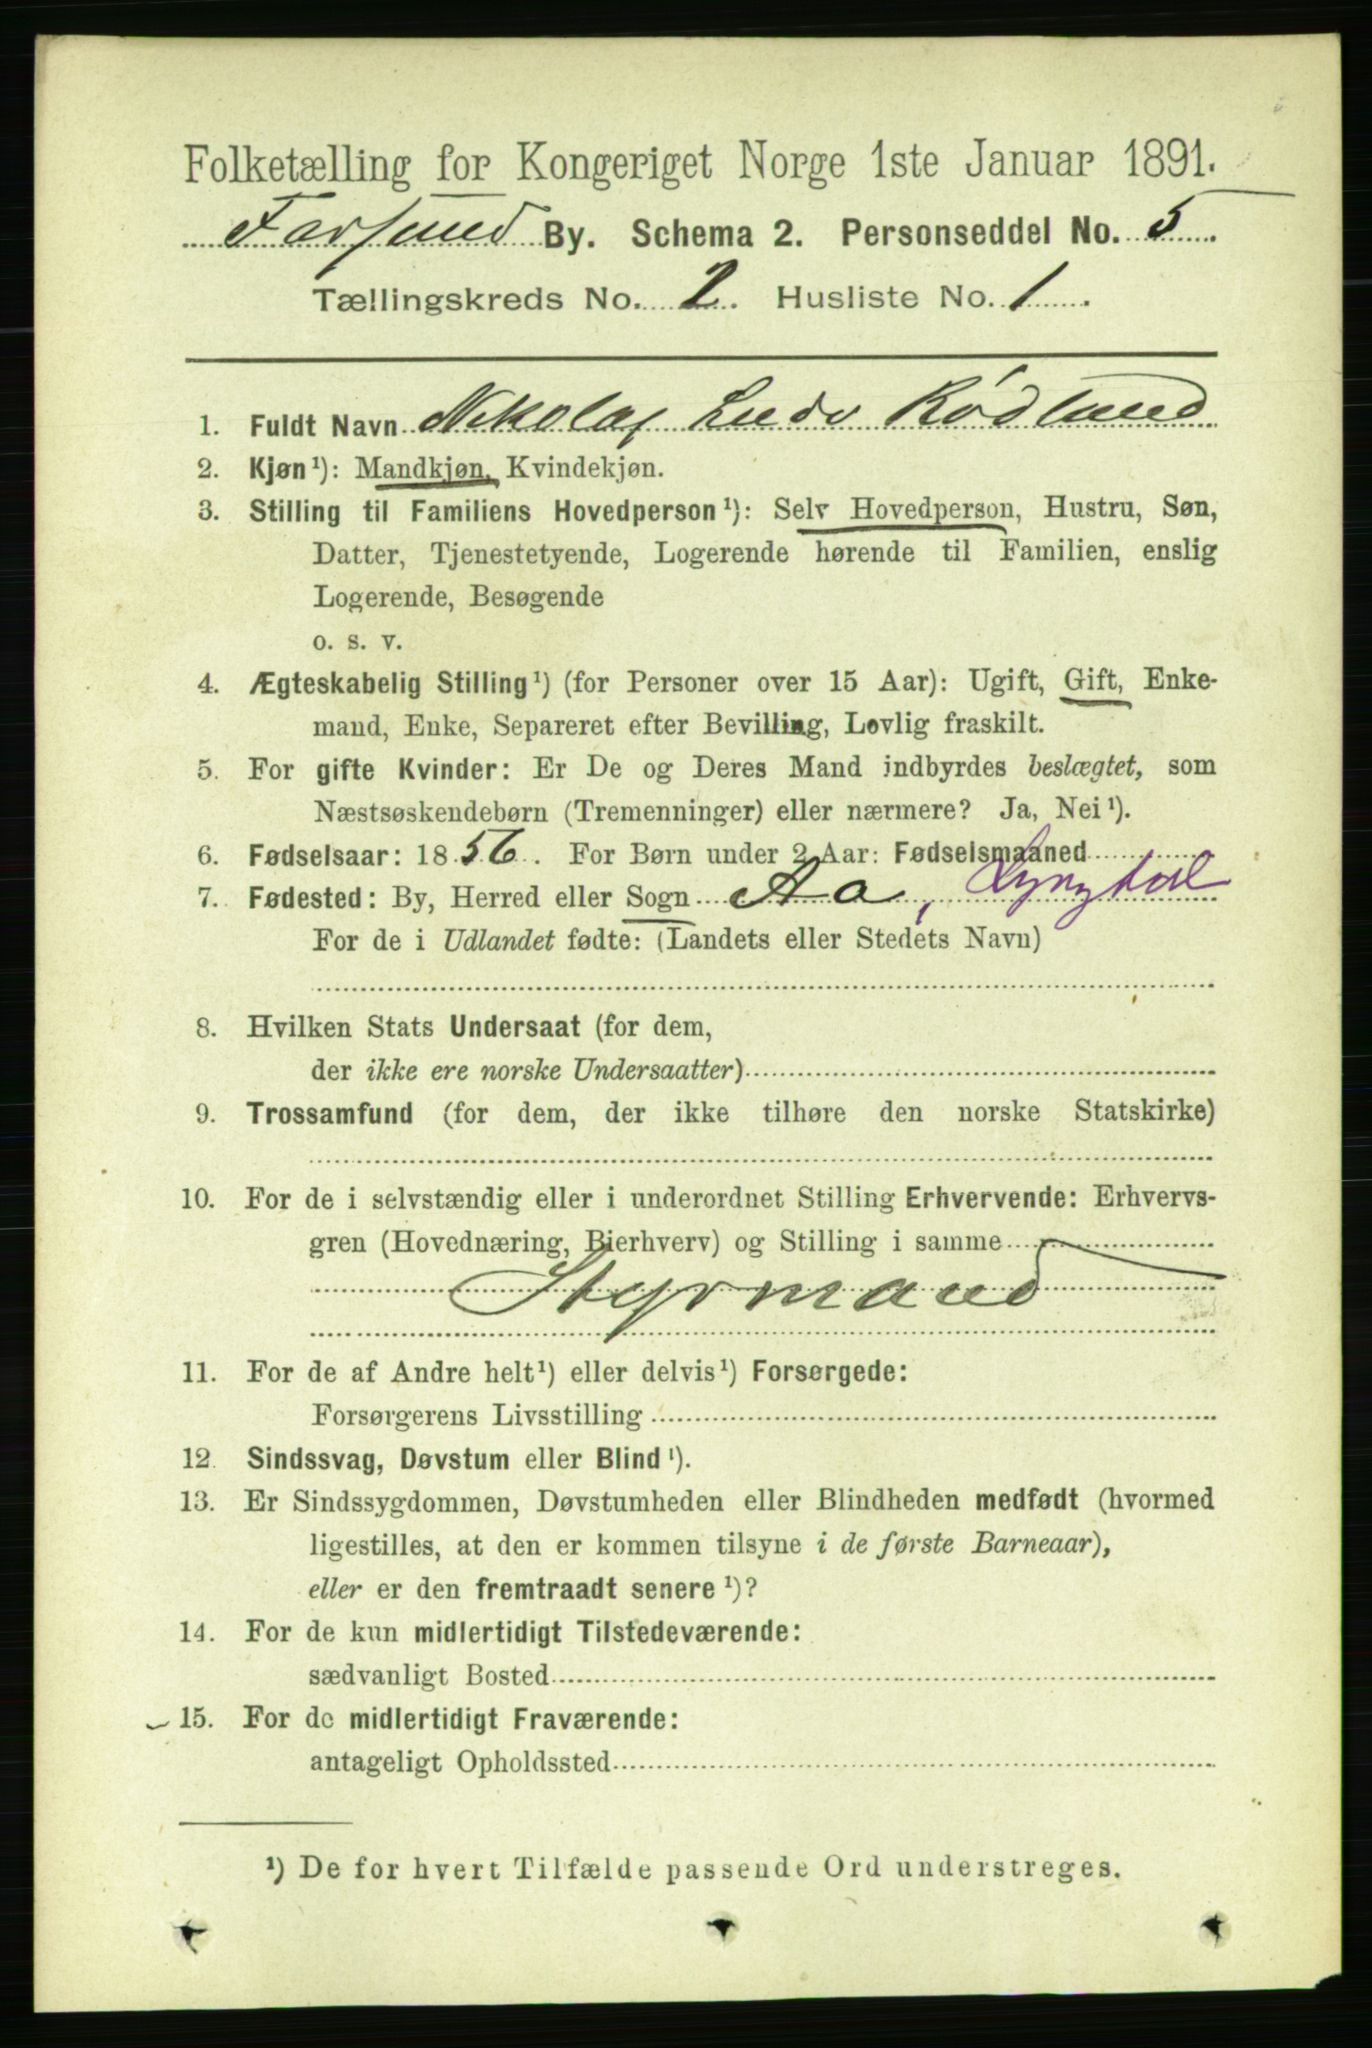 Folketælling for Kongeriget Norge 1ste Januar 1891.
Farsund By. Schema 2. Personseddel No. 5
Tællingskreds No. 2. Husliste No. 1
1. Fuldt Navn Nikolaj Ludv Rødland
2. Kjøn¹): Mandkjøn, Kvindekjøn.
3. Stilling til Familiens Hovedperson¹): Selv Hovedperson, Hustru, Søn,
Datter, Tjenestetyende, Logerende hørende til Familien, enslig
Logerende, Besøgende
o. s. v.
4. Ægteskabelig Stilling¹) (for Personer over 15 Aar): Ugift, Gift, Enke-
mand, Enke, Separeret efter Bevilling, Lovlig fraskilt.
5. For gifte Kvinder: Er De og Deres Mand indbyrdes beslægtet, som
Næstsøskendebørn (Tremenninger) eller nærmere? Ja, Nei¹).
6. Fødselsaar: 1856. For Børn under 2 Aar: Fødselsmaaned
7. Fødested: By, Herred eller Sogn Aa, Lyngdal
For de i Udlandet fødte: (Landets eller Stedets Navn)
8. Hvilken Stats Undersaat (for dem,
der ikke ere norske Undersaatter)
9. Trossamfund (for dem, der ikke tilhøre den norske Statskirke)
10. For de i selvstændig eller i underordnet Stilling Erhvervende: Erhvervs-
gren (Hovednæring, Bierhverv) og Stilling i samme
Styrmand
11. For de af Andre helt¹) eller delvis¹) Forsørgede:
Forsørgerens Livsstilling
12. Sindssvag, Døvstum eller Blind¹).
13. Er Sindssygdommen, Døvstumheden eller Blindheden medfødt (hvormed
ligestilles, at den er kommen tilsyne i de første Barneaar),
eller er den fremtraadt senere¹)?
14. For de kun midlertidigt Tilstedeværende:
sædvanligt Bosted
15. For de midlertidigt Fraværende:
antageligt Opholdssted
¹) De for hvert Tilfælde passende Ord understreges.